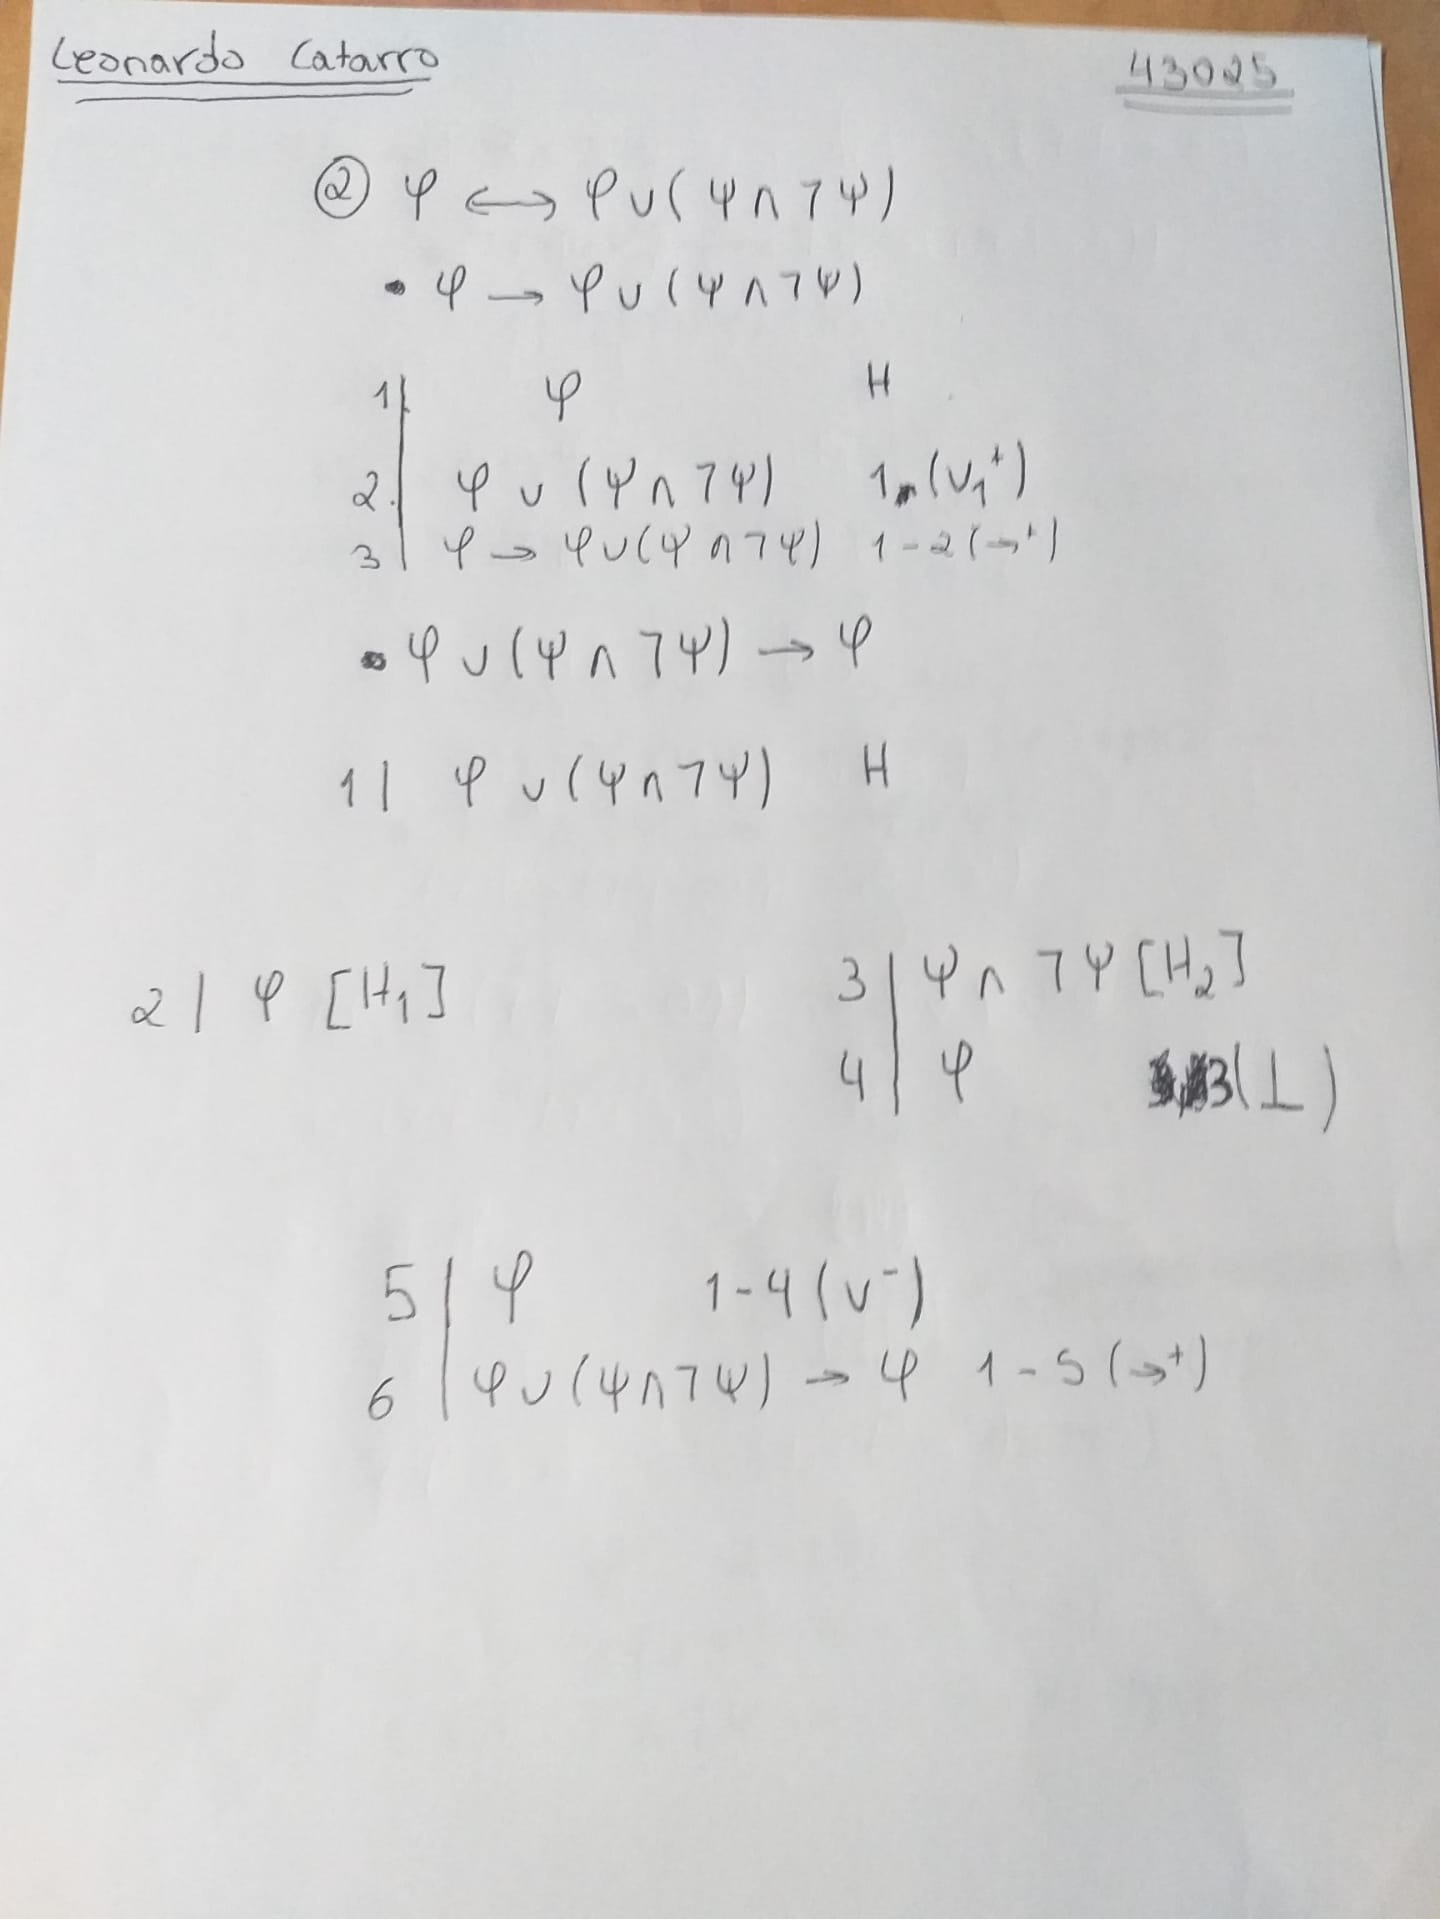 Leonardo Catarro 43025
② φ ⟷ φ ∨ (ψ ∧ ¬ψ)
• φ → φ ∨ (ψ ∧ ¬ψ)
1 | φ H
2. | φ ∨ (ψ ∧ ¬ψ) 1 (∨₁⁺)
3 | φ → φ ∨ (ψ ∧ ¬ψ) 1-2 (→⁺)
• φ ∨ (ψ ∧ ¬ψ) → φ
1 | φ ∨ (ψ ∧ ¬ψ) H
2 | φ [H₁]
3 | ψ ∧ ¬ψ [H₂]
4 | φ 3 (⊥)
5 | φ 1-4 (∨⁻)
6 | φ ∨ (ψ ∧ ¬ψ) → φ 1-5 (→⁺)